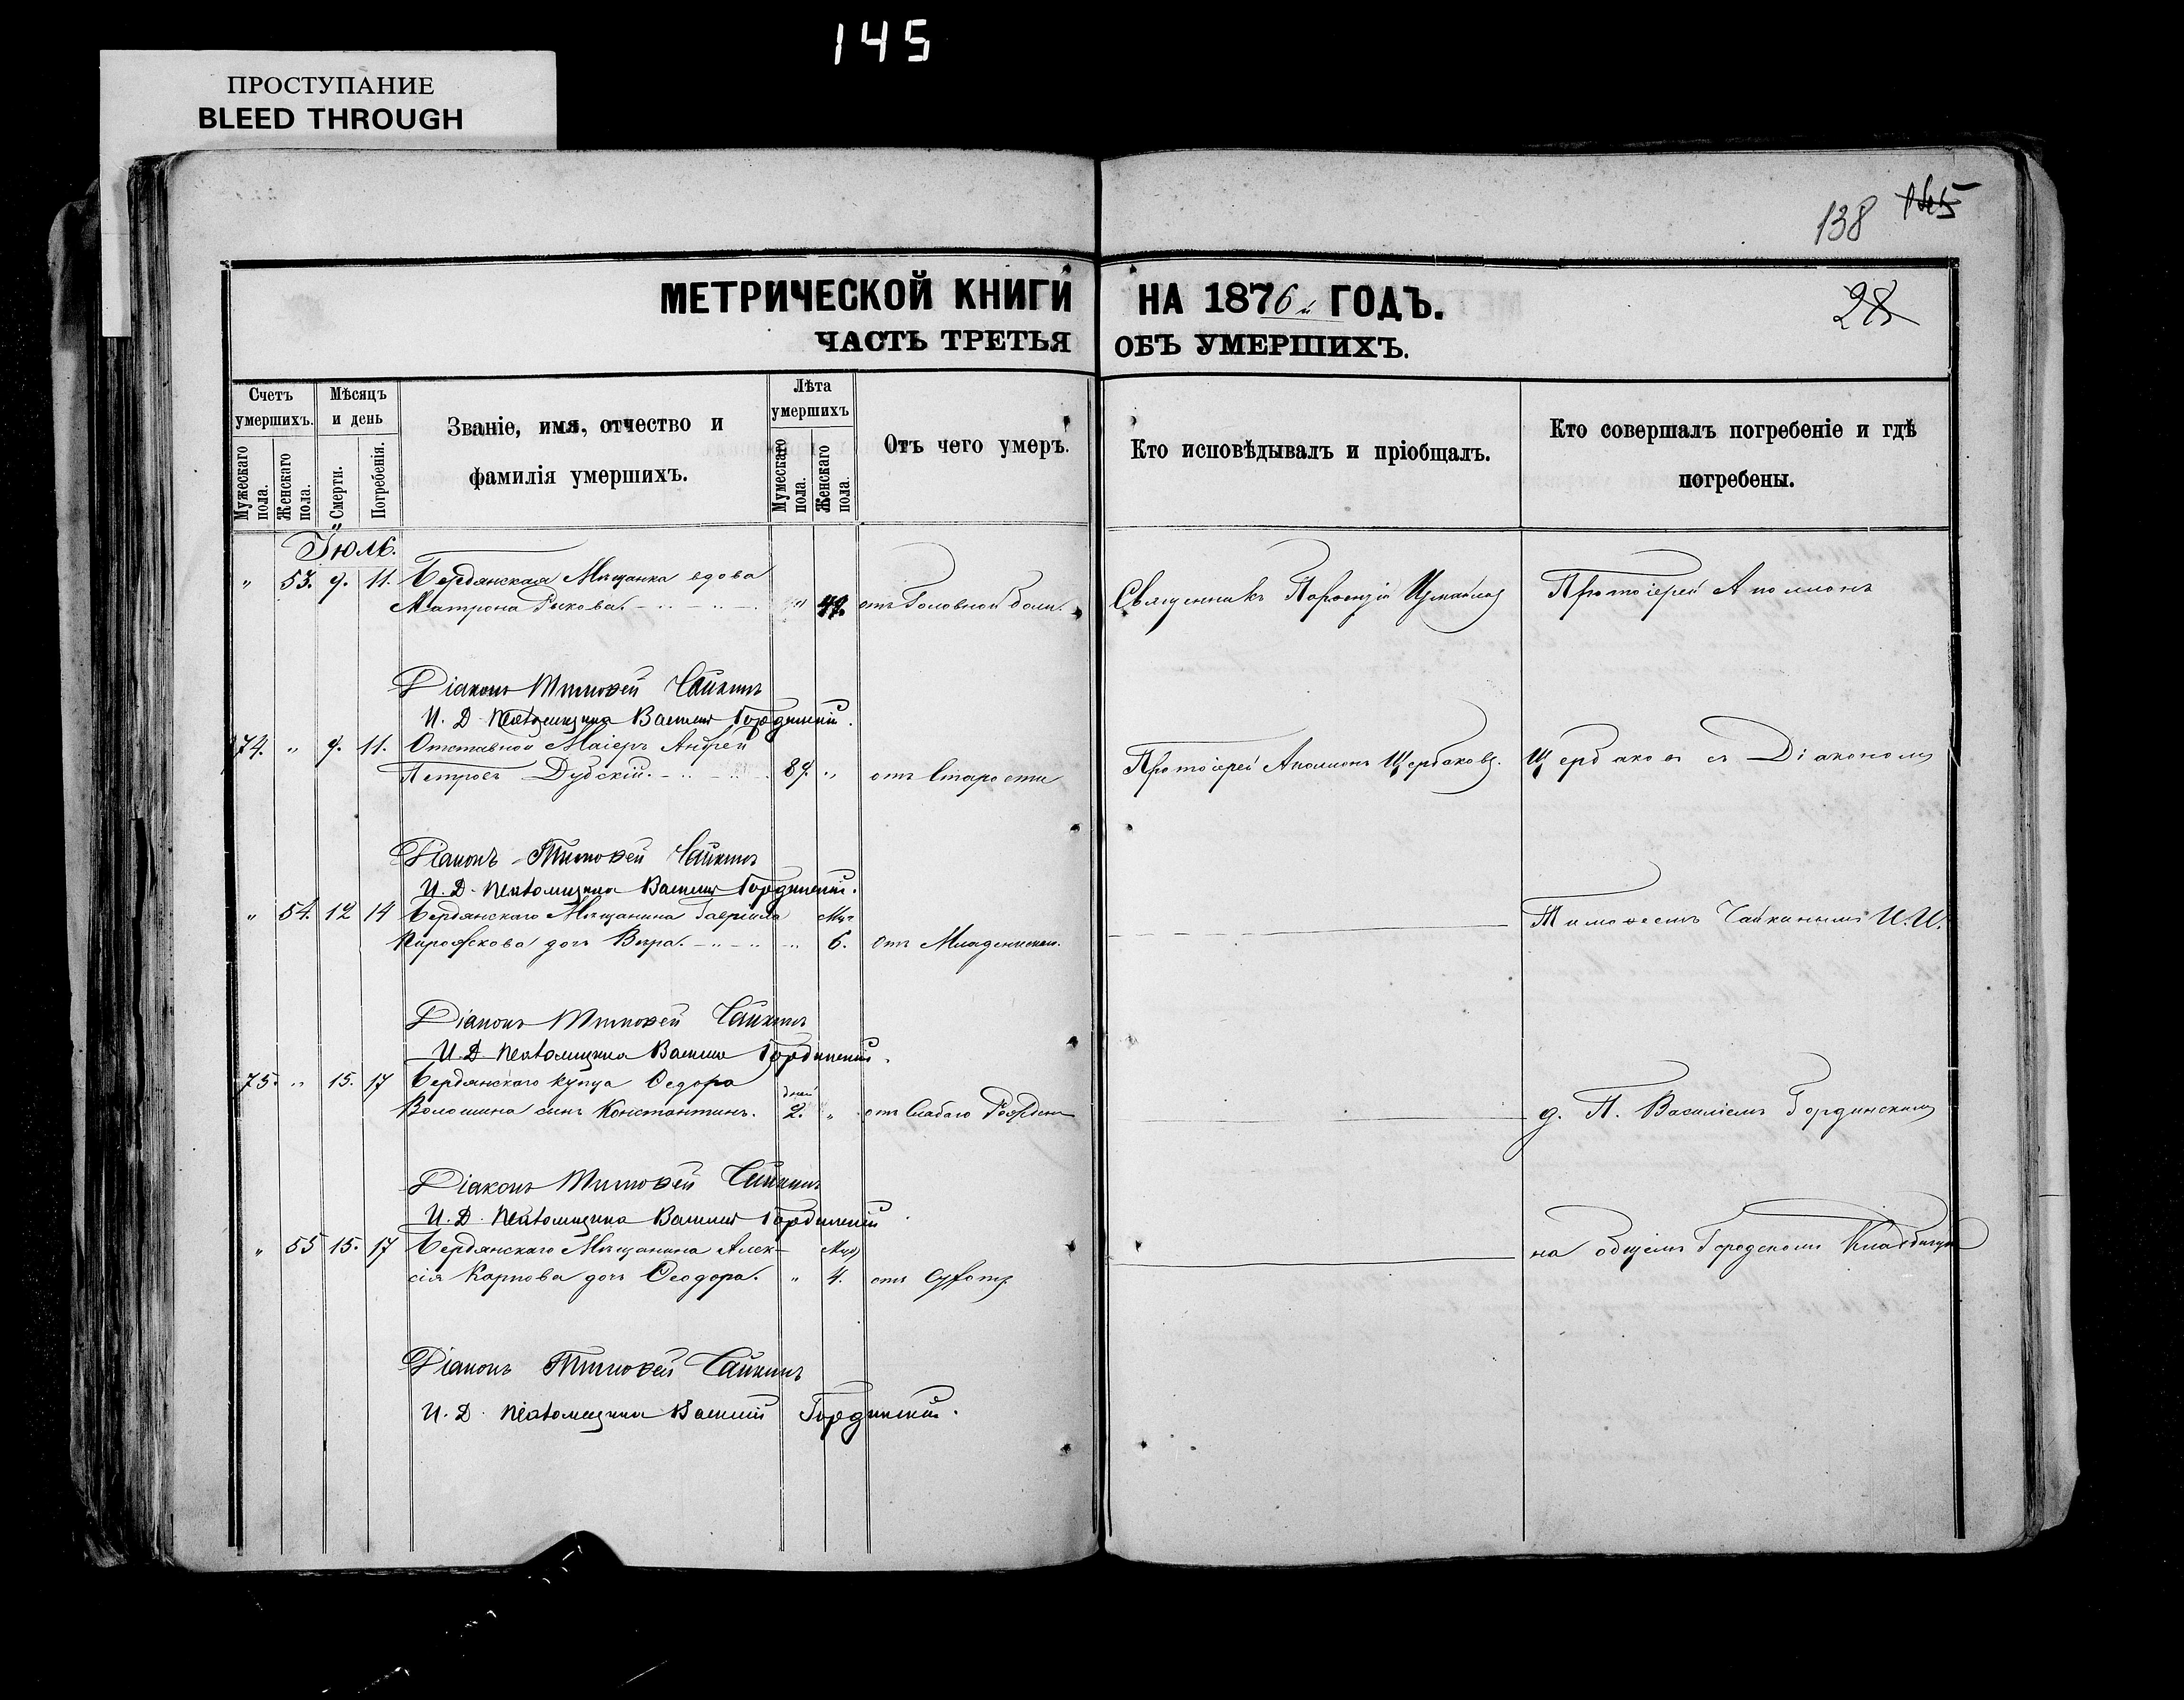 145
ПРОСТУПАНІЕ
BLEED THROUGH
138 145
МЕТРИЧЕСКОЙ КНИГИ НА 1876й ГОДЪ.
28
ЧАСТЬ ТРЕТЬЯ ОБЪ УМЕРШИХЪ.
Счетъ умершихъ.
Мужескаго пола.
Женскаго пола.
Мѣсяцъ и день
Смерти.
Погребенія.
Званіе, имя, отчество и
фамилія умершихъ.
Лѣта умершихъ
Мужескаго пола.
Женскаго пола.
Отъ чего умеръ.
Кто исповѣдывалъ и пріобщалъ.
Кто совершалъ погребеніе и гдѣ
погребены.
Іюль.
" 53. 9. 11. Бердянская Мѣщанка вдова
Матрона Рыкова. " 49. отъ Головной боли. Священникъ Парѳеній Протоіерей Аполлонъ
Діаконъ Тимоѳей Чайкинъ
И. Д. Псаломщика Василій Гординскій.
74. " 9. 11. Отставной Маіоръ Андрей
Петровъ Дубскій. 89. " отъ Старости Протоіерей Аполлонъ Щербаковъ. Щербаковъ съ Діакономъ
Діаконъ Тимоѳей Чайкинъ
И. Д. Псаломщика Василій Гординскій.
" 54. 12 14 Бердянскаго Мѣщанина Гавріила Мѣс
дочь Вѣра. " 6. отъ Младенческой. Тимоѳеемъ Чайкинымъ И. И.
Діаконъ Тимоѳей Чайкинъ
И. Д. Псаломщика Василій Гординскій.
75. " 15. 17 Бердянскаго купца Ѳедора дней
Волошина сынъ Константинъ. 2. " отъ Слабаго Рожден д. П. Василіемъ Гординскимъ
Діаконъ Тимоѳей Чайкинъ
И. Д. Псаломщика Василій Гординскій
" 55 15. 17 Бердянскаго Мѣщанина Алек- Мѣс на общемъ Городскомъ Кладбищѣ
сія Карпова дочь Ѳеодора. " 4. отъ
Діаконъ Тимоѳей Чайкинъ
И. Д. Псаломщика Василій Гординскій.